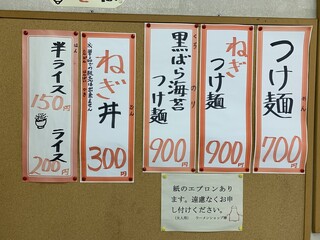 つけ麺
700円
ねぎ
つけ麺
900円
黒ばら海苔
つけ麺
900円
ねぎ丼
300円
半ライス
150円
ライス
200円
紙のエプロンあり
ます。遠慮なくお申
し付けください。